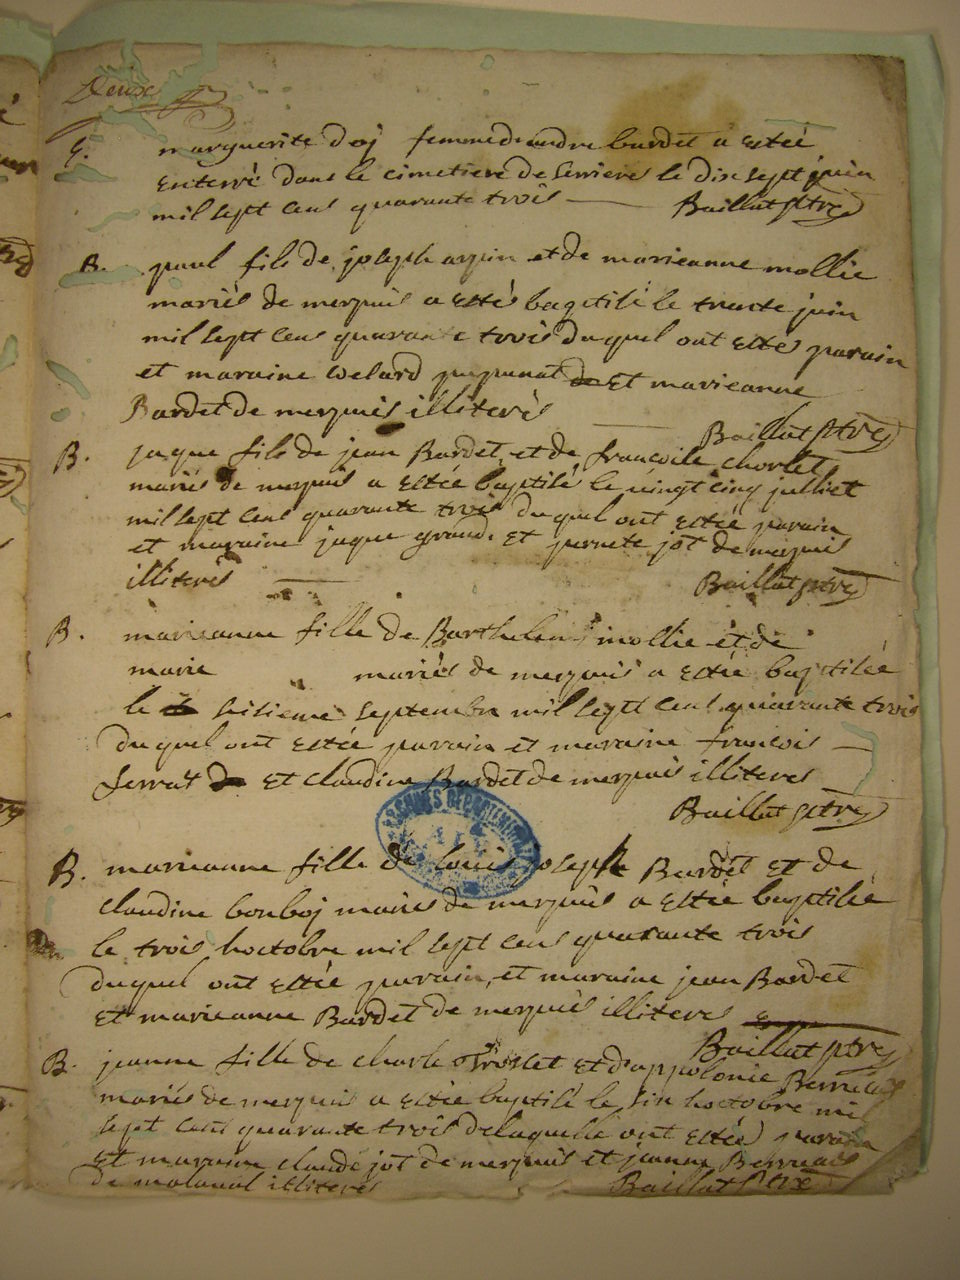 Deuxe
E. marguerite Doj femme deandre bardet a estéé
enterré dans le cimetiere de serriere le dix sept juin
mil sept cens quarante trois Baillat ptre
B. paul fils de joseph arpin et de marieanne mollie
mariés de merpuis a estés baptisé le trente juin
mil sept cens quarante trois duquel ont estés parain
et maraine et marieanne
Bardet de merpuis illiterés
Baillat ptre
B. jaque fils de jean Bardet et de francoise chorlet
mariés de merpuis a estéé baptisé le vingt cinq julliet
mil sept cens quarante trois duquel ont estéé parain
et maraine jaque grand. et pernete jot de merpuis
illiterés Baillat ptre
B. marieanne fille de Barthelemi mollie et de
marie mariés de merpuis a estéé baptiséé
le sisieme septembre mil sept cens quarante trois
duquel ont estéé parain et maraine francois
serrat et claudine Bardet de merpuis illiteres
Baillat ptre
B. marieanne fille de louis joseph Bardet et de
claudine bonboj maries de merpuis a estéé baptiséé
le trois hoctobre mil sept cens quarante trois
duquel ont estéé parain et maraine jean Bardet
et marieanne Bardet de merpuis illiteres
Baillat ptre
B. jeanne fille de charle et dappolonie
mariés de merpuis a estéé baptisé le six hoctobre mil
sept cens quarante trois delaquelle ont estéé parain
et maraine claude jot de merpuis et jeanne
de illiteres Baillat ptre